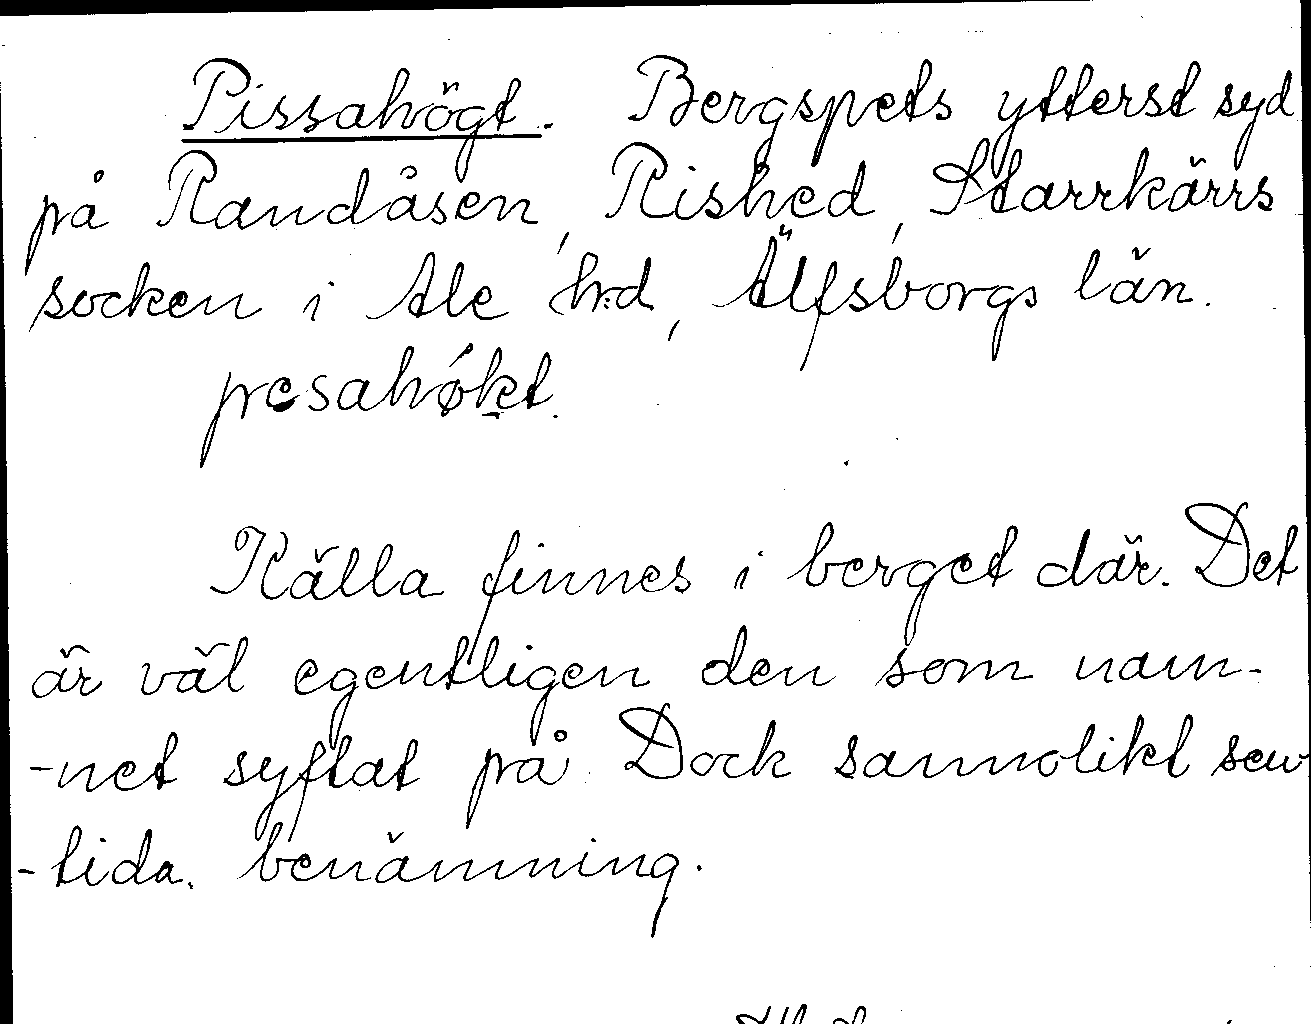 Pissahögt. Bergspets ytterst syd
på Randåsen, Rished, Starrkärrs
socken i Ale hrd, Älfsborgs län.
pesahøkt.
Källa finnes i berget där. Det
är väl egentligen den som nam-
-net syftat på. Dock sannolikt sen-
-tida benämning.